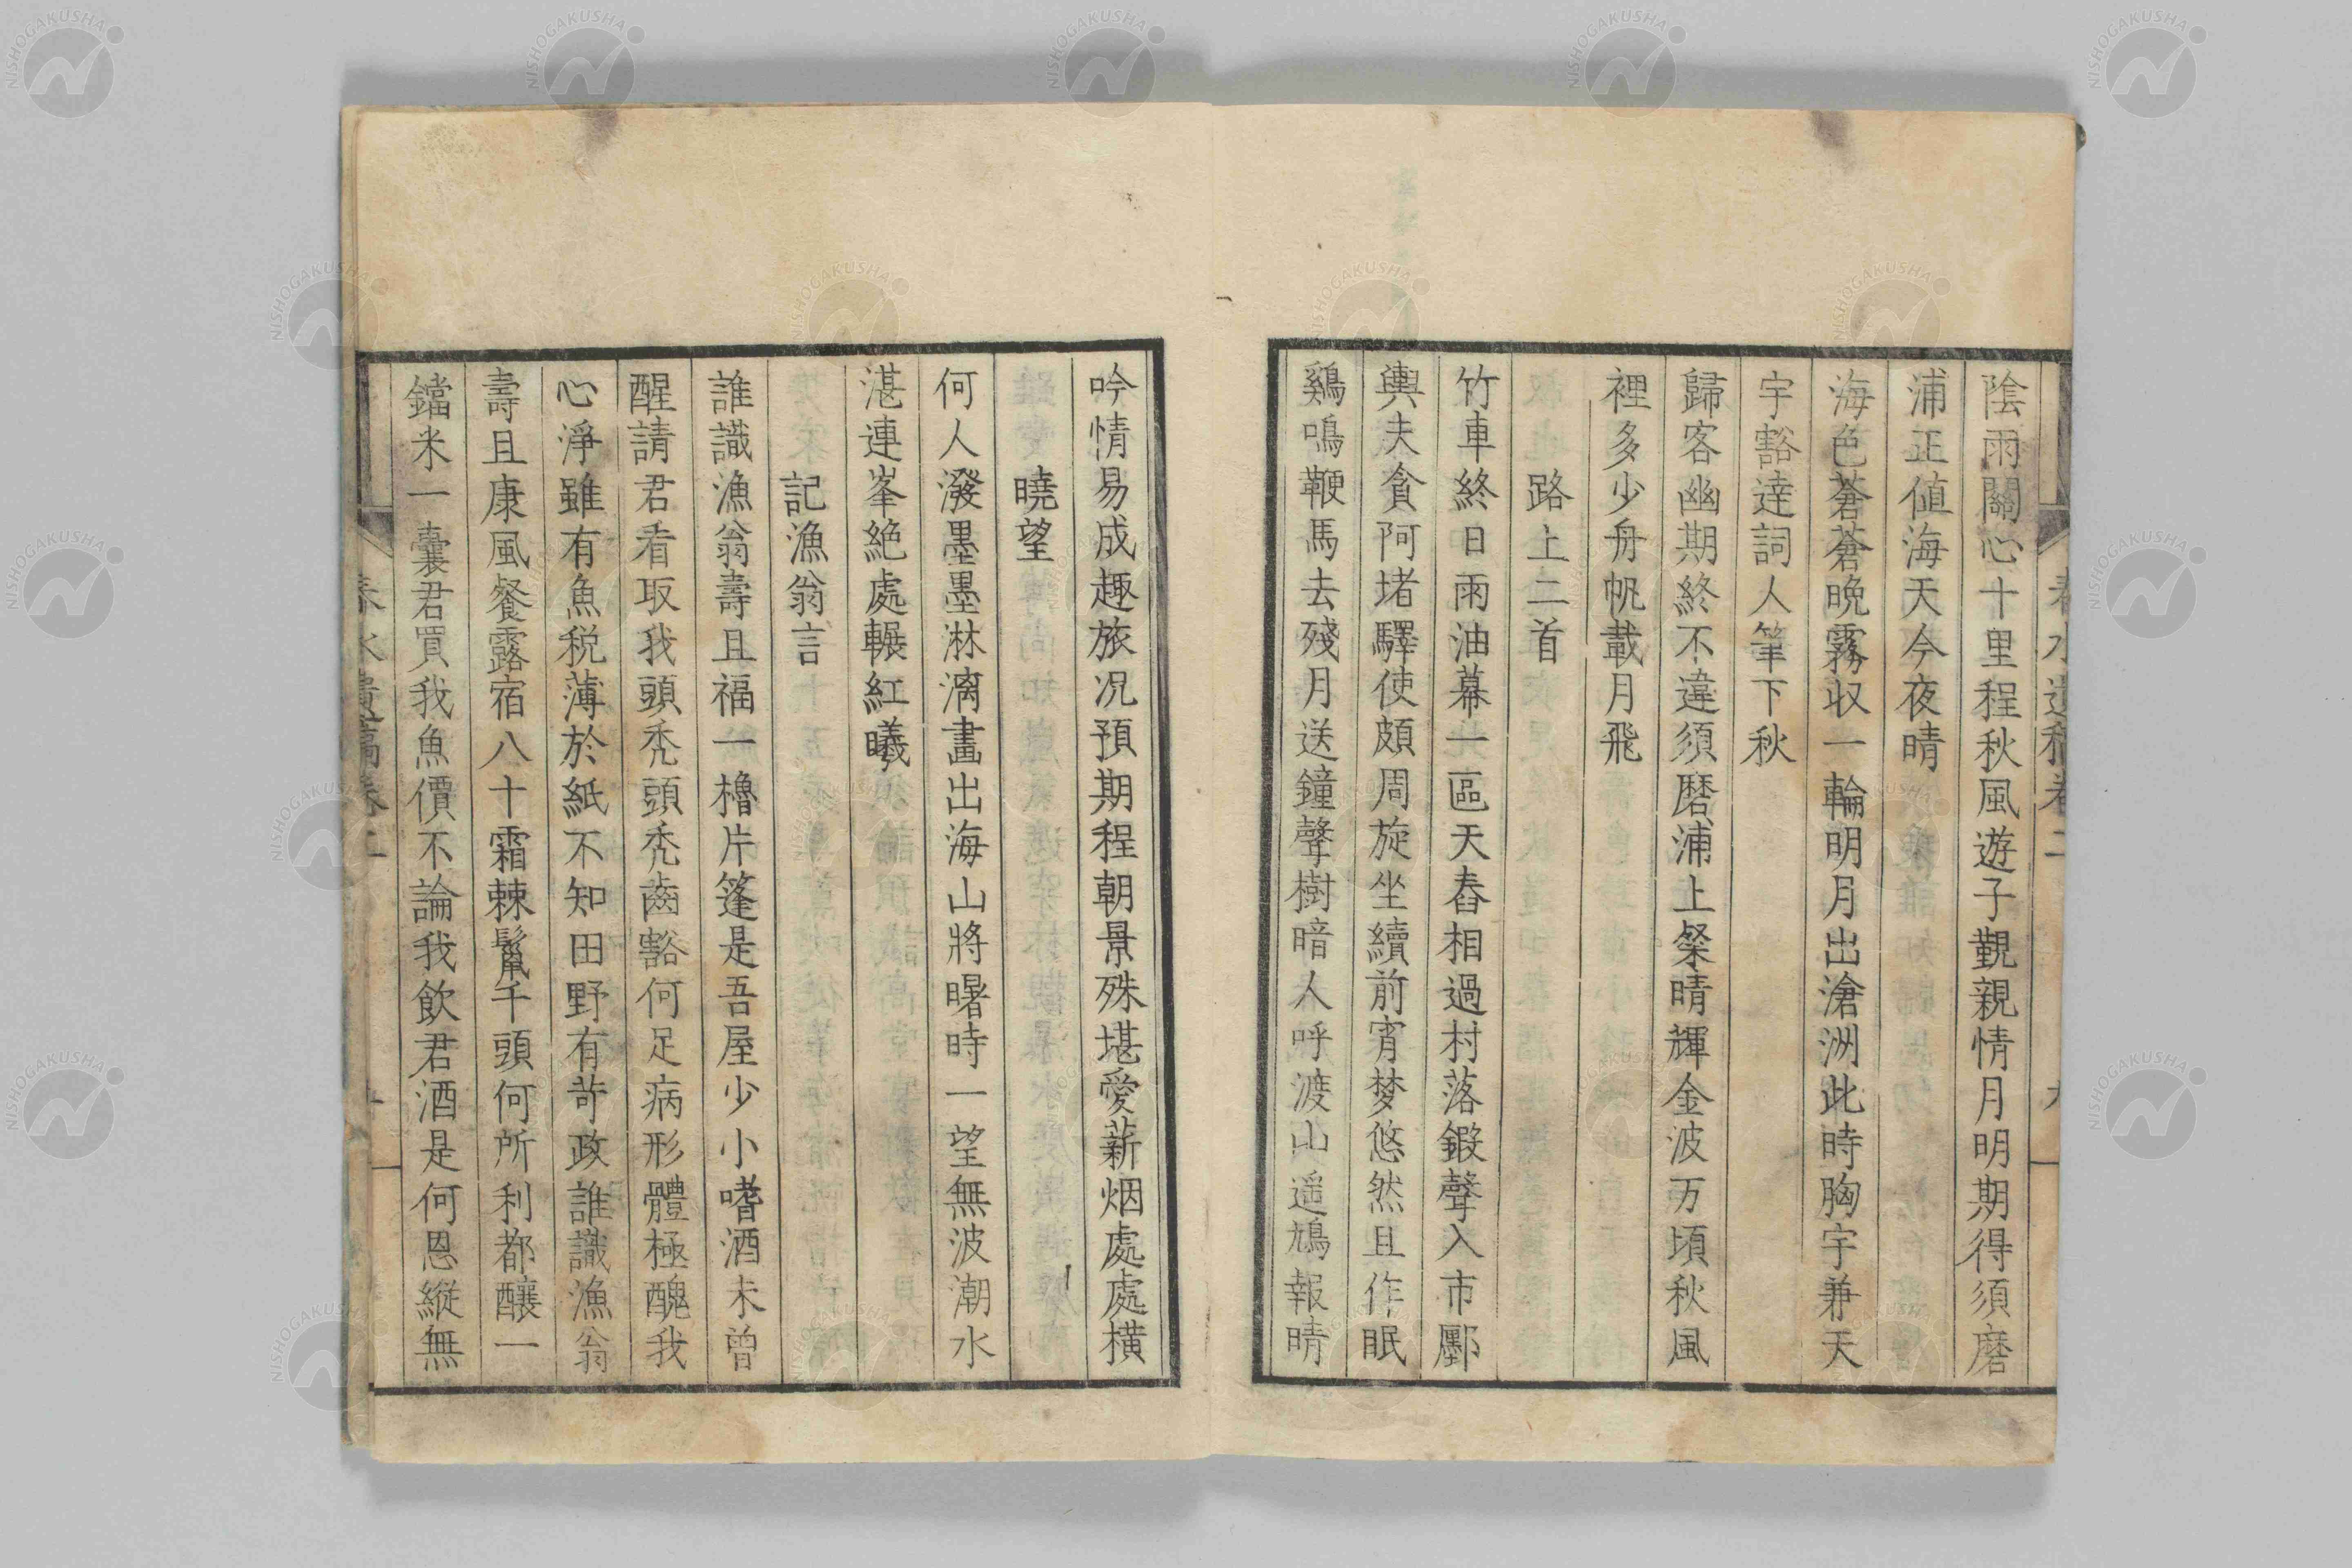 陰雨關心十里程秋風遊子覲親情月明期得須磨
浦正値海天今夜晴
海色蒼蒼晩霧収一輪明月出滄洲此時胸宇兼天
宇豁達詞人筆下秋
歸客幽期終不違須磨浦上粲晴輝金波万頃秋風
裡多少舟帆載月飛
路上二首
竹車終日雨油幕一區天舂相過村落鍜聲入市鄽
輿夫貪阿堵驛使頗周旋坐續前宵梦悠然且作眠
鷄鳴鞭馬去殘月送鐘聲樹暗人呼渡山遥鳩報晴
吟情易成趣旅况預期程朝景殊堪愛薪烟處處横
曉望
何人潑墨墨淋漓畫出海山將曙時一望無波潮水
湛連峯絶處輾紅曦
記漁翁言
誰識漁翁壽且福一櫓片篷是吾屋少小嗜酒未曾
醒請君看取我頭禿頭禿齒豁何足病形體極醜我
心淨雖有魚税薄於紙不知田野有苛政誰識漁翁
壽且康風餐露宿八十霜棘鬣千頭何所利都釀一
鐺米一囊君買我魚價不論我飲君酒是何恩縦無
春水遺稿卷二
NISHOGAKUSHA